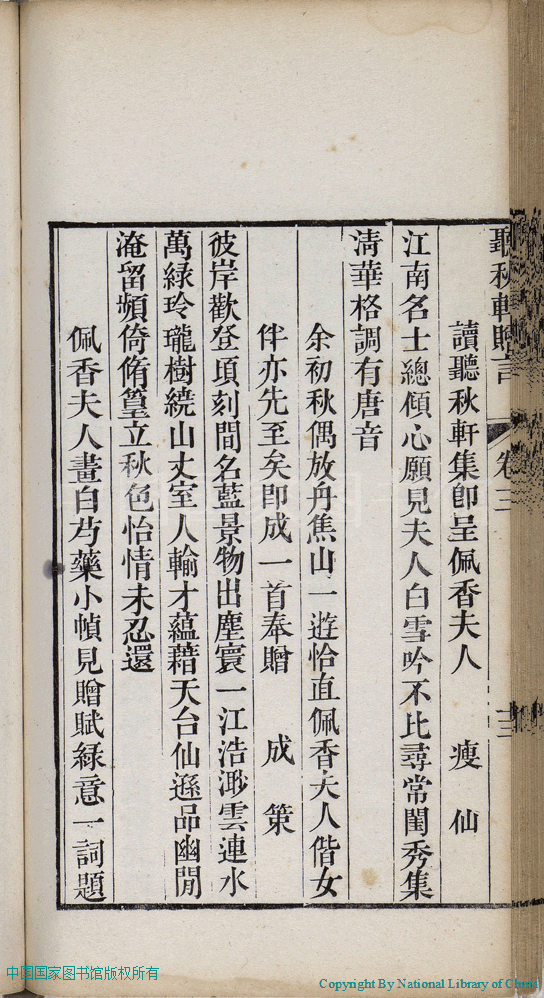 聽秋軒贈言 卷三 十三
讀聽秋軒集即呈佩香夫人 瘦仙
江南名士總傾心願見夫人白雪吟不比尋常閨秀集
淸華格調有唐音
余初秋偶放舟焦山一遊恰直佩香夫人偕女
伴亦先至矣即成一首奉贈 成策
彼岸歡登頃刻間名藍景物出塵寰一江浩渺雲連水
萬綠玲瓏樹繞山丈室人輸才蘊藉天台仙遜品幽閒
淹留頻倚脩篁立秋色怡情未忍還
佩香夫人畫白芍藥小幀見贈賦綠意一詞題
中国国家图书馆版权所有
Copyright By National Library of China